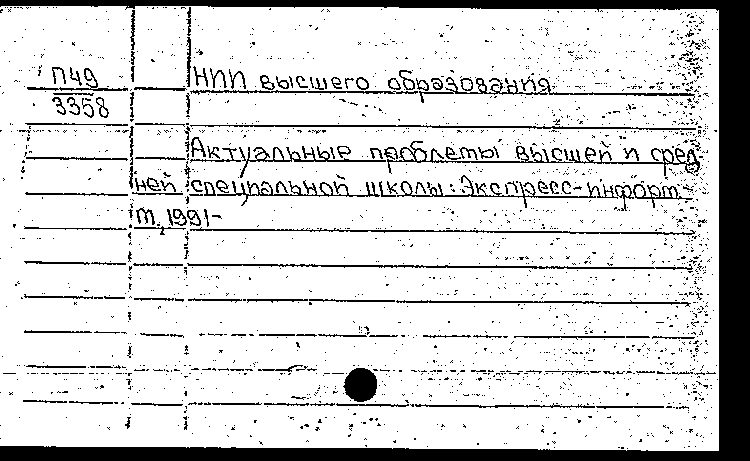 П49
3358
НИИ высшего образования
Актуальные проблемы высшей и сред-
ней специальной школы: Экспресс-информ.
М., 1991-